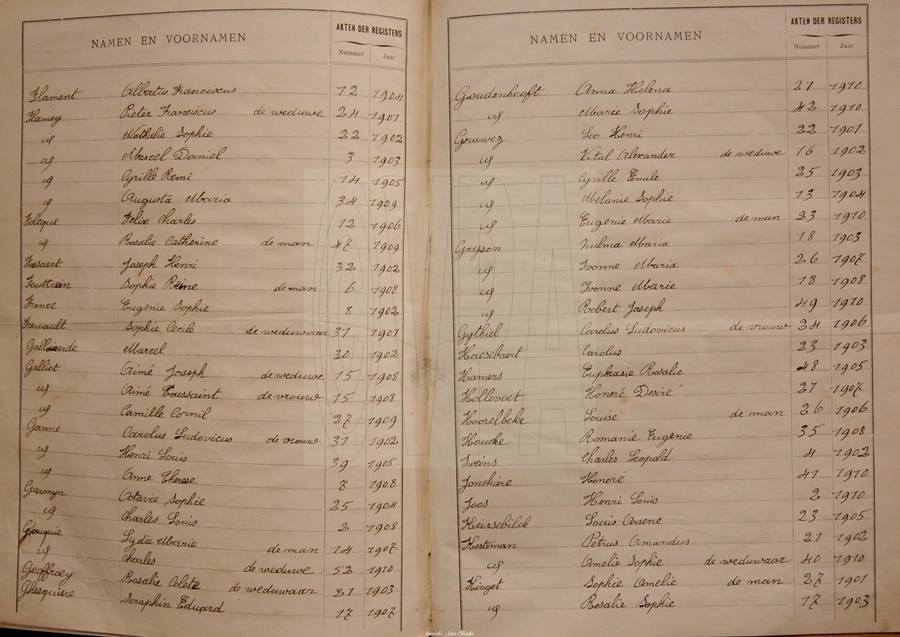 NAMEN EN VOORNAMEN AKTEN DER REGISTERS
Nummer Jaar
Flament Albertus Franciscus 12 1904
Flamey Pieter Franciscus de weduwe 24 1901
id Nathalie Sophie 22 1902
id Marcel Daniel 3 1903
id Cyrille Remi 14 1905
id Augusta Maria 34 1909
Folcque Felix Charles 12 1906
id Rosalie Catherine de man 47 1909
Fossaert Joseph Henri 32 1902
Sophie Reine de man 6 1908
France Eugenie Sophie 8 1902
Sophie Cecile de weduwaar 31 1901
Marcel 30 1902
Galliet Aimé Joseph de weduwe 15 1908
id Aimé Toussaint de vrouw 15 1908
id Camille Cornil 27 1909
Ganne Carolus Ludovicus de vrouw 31 1902
id Henri Louis 39 1905
id Anne Therese 7 1908
Garmyn Octavie Sophie 25 1904
id Charles Louis 2 1908
Lydie Marie de man 14 1907
id Charles de weduwe 52 1910
Geoffroey Rosalie Colete de weduwaar 21 1903
Ghesquiere Seraphin Eduard 17 1907
NAMEN EN VOORNAMEN AKTEN DER REGISTERS
Nummer Jaar
Goudenhooft Anna Helena 21 1910
id Marie Sophie 42 1910
Gouwez Leo Henri 22 1901
id Vital Alexander de weduwe 16 1902
id Cyrille Emile 25 1903
id Melanie Sophie 13 1904
id Eugenie Marie de man 23 1910
Grepson Zulma Maria 18 1903
id Yvonne Maria 26 1907
id Yvonne Marie 18 1908
id Robert Joseph 49 1910
Gythiel Carolus Ludovicus de vrouw 24 1906
Haesebaert Carolus 23 1903
Hamers Euphrasie Rosalie 48 1905
Hollevoet Honoré Desiré 27 1907
Hoorelbeke Louise de man 26 1906
Houcke Romanie Eugenie 35 1908
Iweins Charles Leopold 4 1902
Janekiere Honoré 41 1910
Joos Henri Louis 2 1910
Keirsebilck Louis Arsene 23 1905
Kesteman Petrus Amandus 21 1902
id Amelie Sophie de weduwaar 40 1910
Kinget Sophie Amelie de man 27 1901
id Rosalie Sophie 17 1903